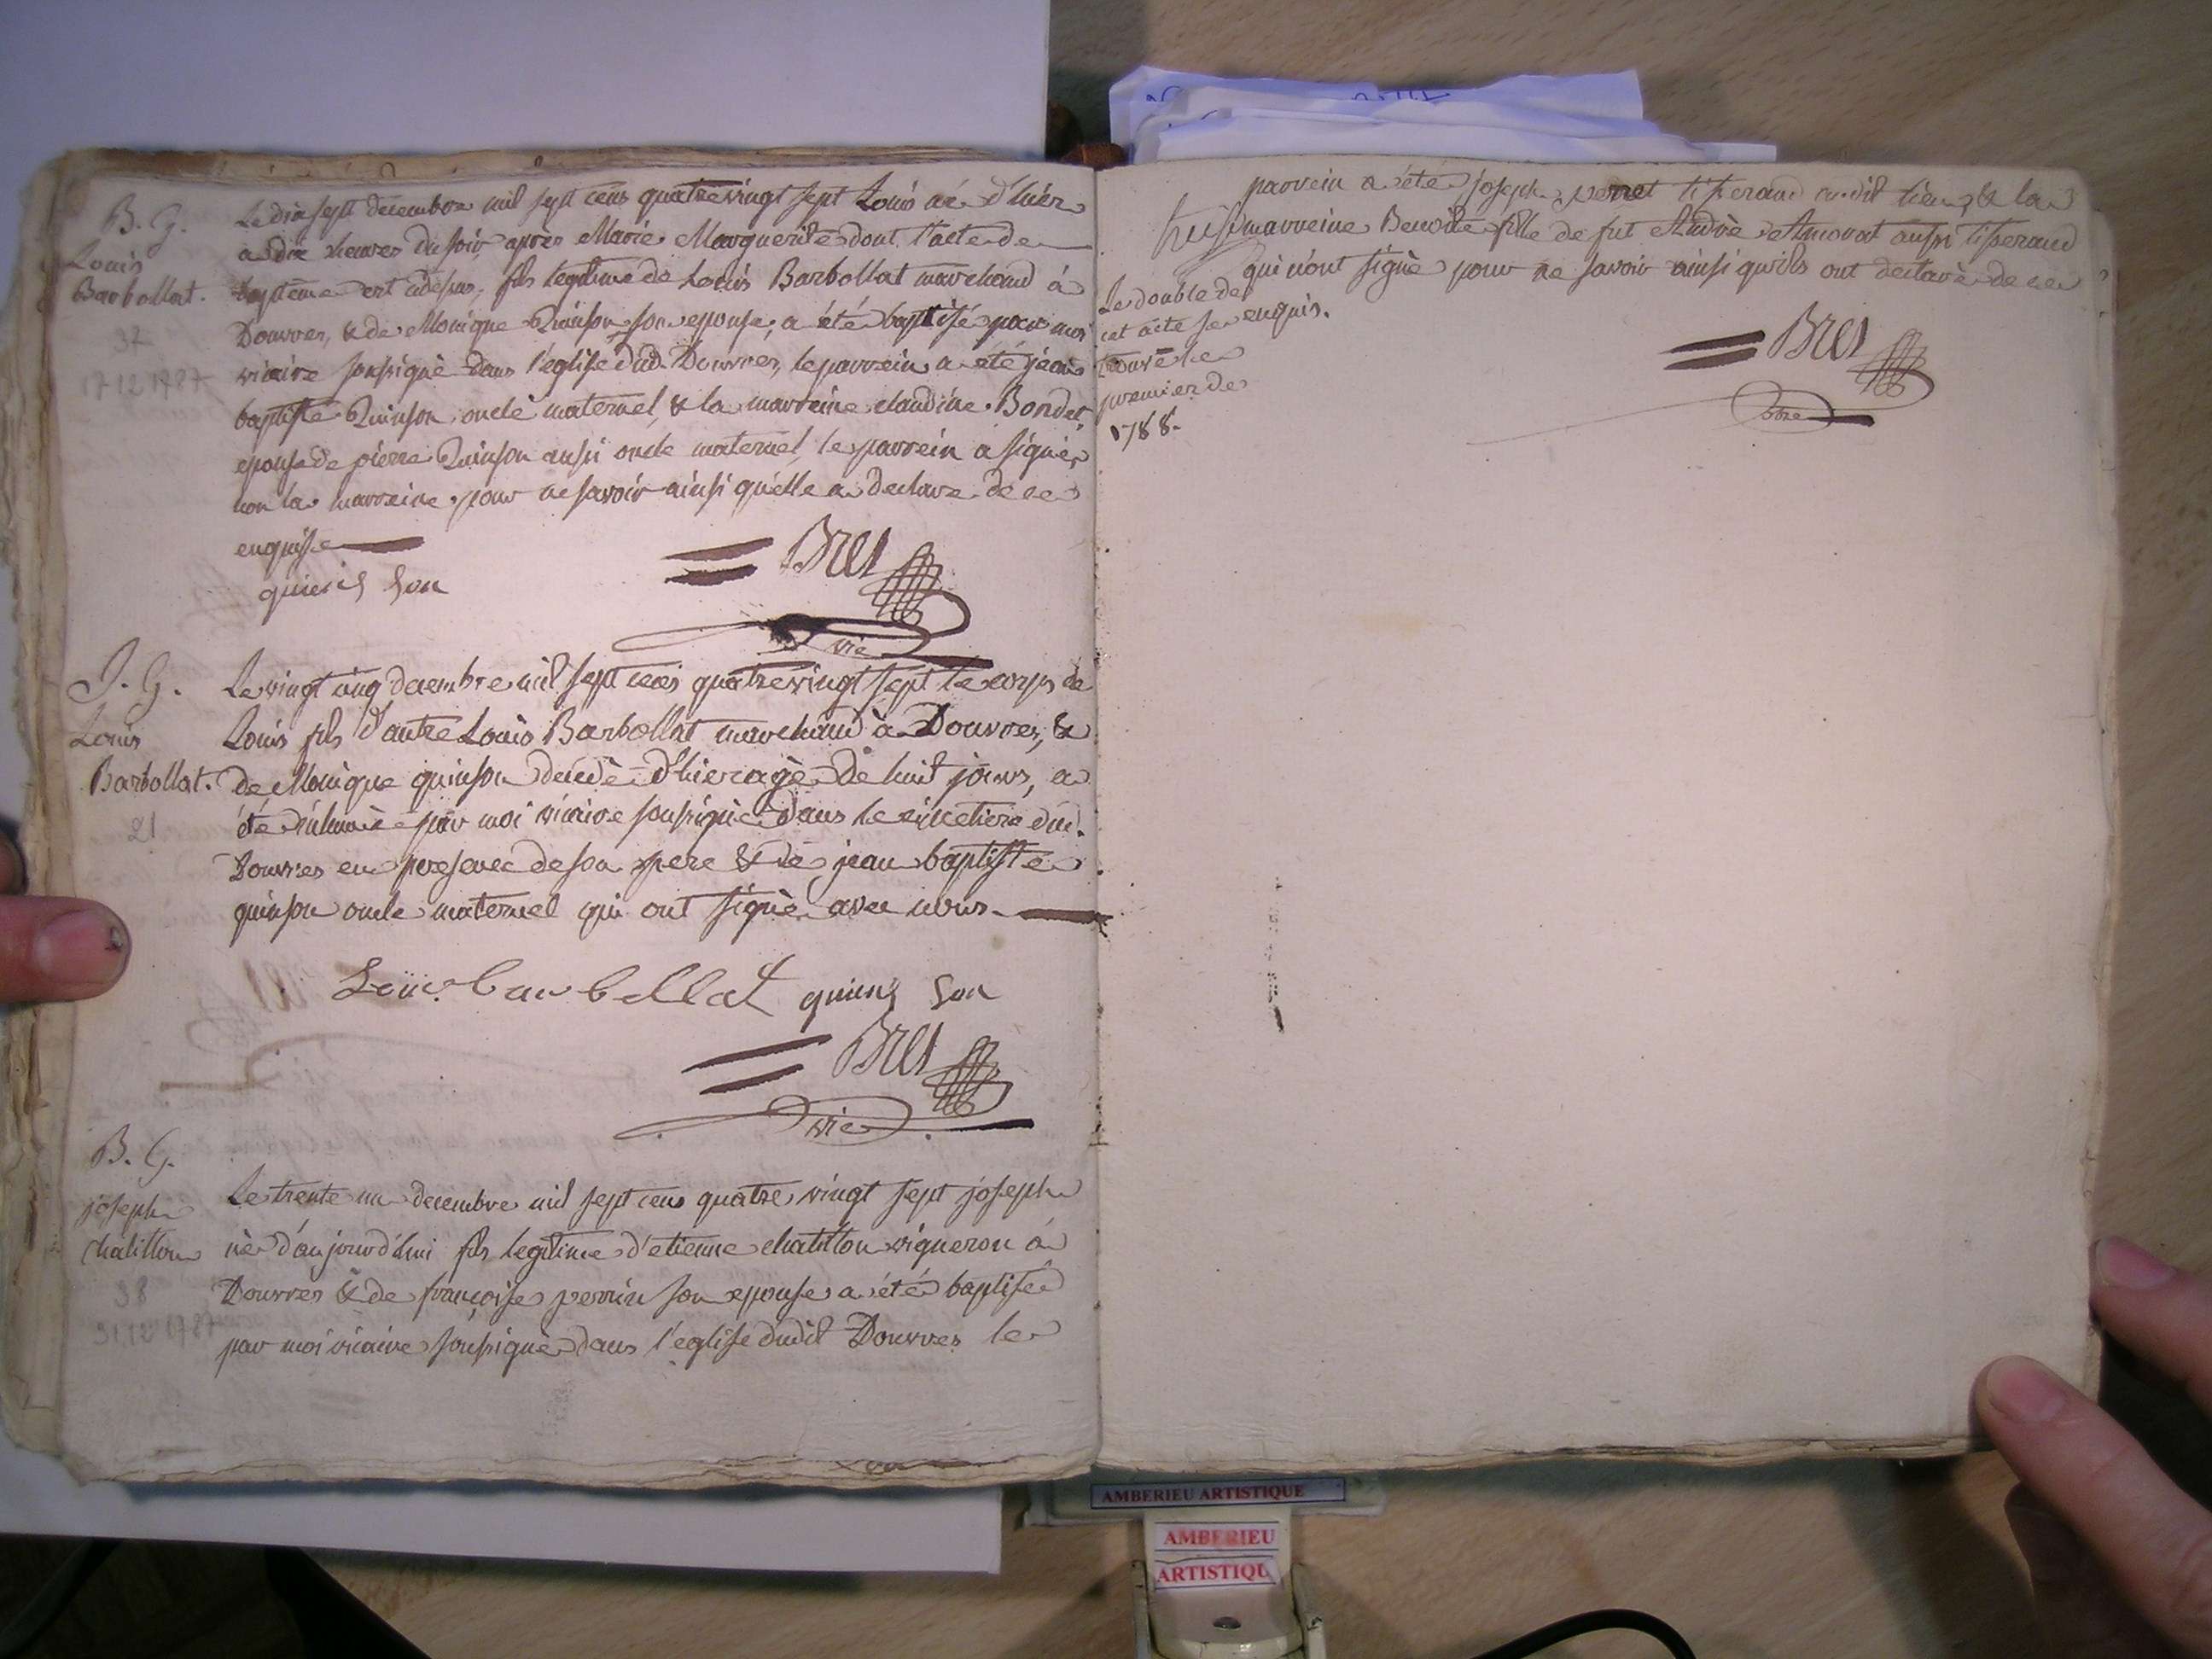 B. G.
Louis
Barbollat.
37
17 12 1787
Le dix sept decembre mil sept cens quatrevingt sept Louis né d'hier
a dix heures du soir après Marie Marguerite dont l'acte de
baptême est cidessus, fils legitime de Louis Barbollat marchand à
Douvres, & de Monique Quinson son epouse, a été baptisé par moi
vicaire soussigné dans l'eglise dud. Douvres, le parrein a été jean
baptiste Quinson oncle maternel, & la marreine claudine Bondet
epouse de pierre Quinson aussi oncle maternel, le parrein a signé,
non la marreine pour ne savoir ainsi qu'elle a declaré de ce
enquise
quinson
Bret
vic
J. G.
Louis
Barbollat.
21
Le vingt cinq decembre mil sept cens quatrevingt sept le corps de
Louis fils d'autre Louis Barbollat marchand à Douvres, &
de Monique quinson decedé d'hier agé de huit jours, a
été inhumé par moi vicaire soussigné dans le cimetiere dud.
Douvres en presence de son pere & de jean baptiste
quinson oncle maternel qui ont signé avec nous.
Louis barbollat quinson
Bret
vic
B. G.
joseph
chatillon
38
31 12 1787
Le trente un decembre mil sept cens quatre vingt sept joseph
né d'aujourd'hui fils legitime d'etienne chatillon vigneron à
Douvres & de françoise perrin son epouse a été baptisé
par moi vicaire soussigné dans l'eglise dudit Douvres le
parrein a été joseph perret tisserand au dit lieu, & la
marreine Benoite fille de fut André Amorat aussi tisserand
qui n'ont signé pour ne savoir ainsi qu'ils ont declaré de ce
enquis.
Le double de
cet acte se
trouve le
premier de
1788.
Bret
AMBERIEU ARTISTIQUE
AMBERIEU
ARTISTIQU